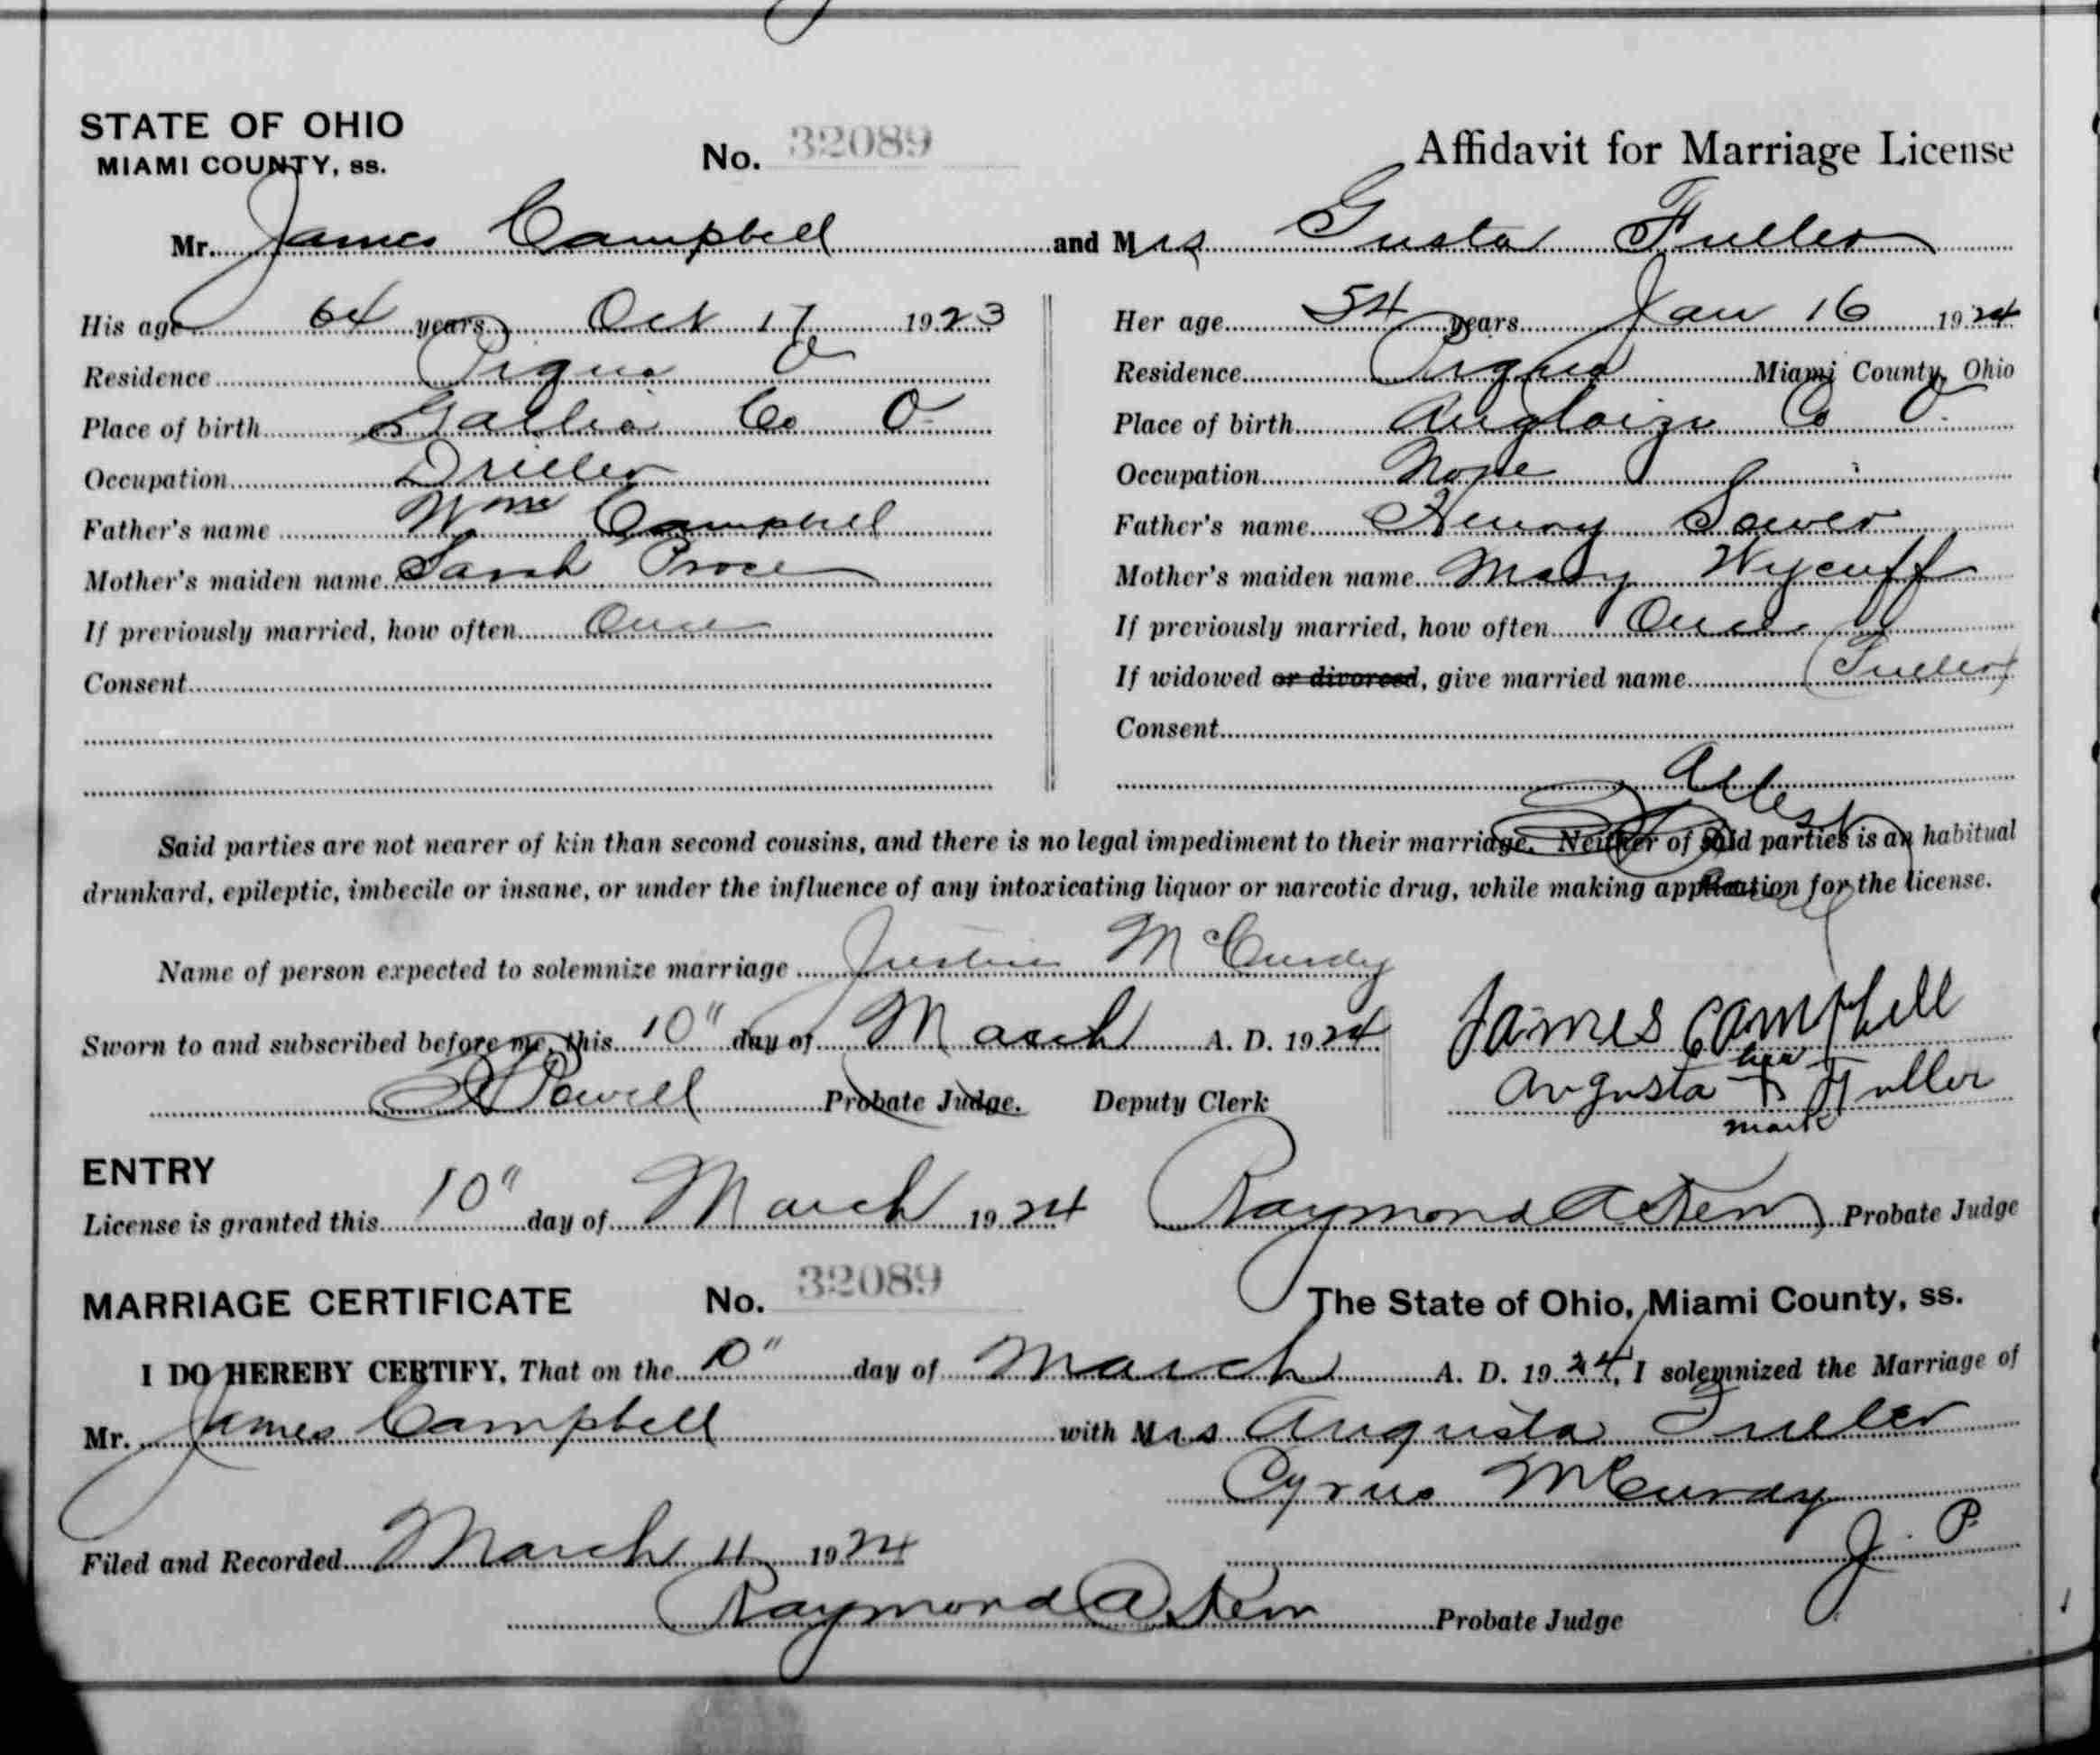 STATE OF OHIO
MIAMI COUNTY, ss.
No. 32089
Affidavit for Marriage License
Mr. James Campbell and Mrs Gusta Fuller
His age 64 years Oct 17 1923
Residence Piqua O
Place of birth Gallia Co O
Occupation Driller
Father's name Wm Campbell
Mother's maiden name Sarah
If previously married, how often Once
Consent
Her age 54 years Jan 16 1924
Residence Piqua Miami County, Ohio
Place of birth Auglaize Co O
Occupation None
Father's name Henry Sower
Mother's maiden name Mary Wycuff
If previously married, how often Once
If widowed or divorced, give married name (Fuller)
Consent
Attest
Said parties are not nearer of kin than second cousins, and there is no legal impediment to their marriage. Neither of said parties is an habitual
drunkard, epileptic, imbecile or insane, or under the influence of any intoxicating liquor or narcotic drug, while making application for the license.
Name of person expected to solemnize marriage Justice McCurdy
Sworn to and subscribed before me, this 10" day of March A. D. 1924
Powell Probate Judge. Deputy Clerk
James Campbell
her
Augusta + Fuller
mark
ENTRY
License is granted this 10" day of March 1924 Raymond A Kerr Probate Judge
MARRIAGE CERTIFICATE No. 32089 The State of Ohio, Miami County, ss.
I DO HEREBY CERTIFY, That on the 10" day of March A. D. 1924, I solemnized the Marriage of
Mr. James Campbell with Mrs Augusta Fuller
Cyrus McCurdy
J. P.
Filed and Recorded March 11 1924
Raymond A Kerr Probate Judge